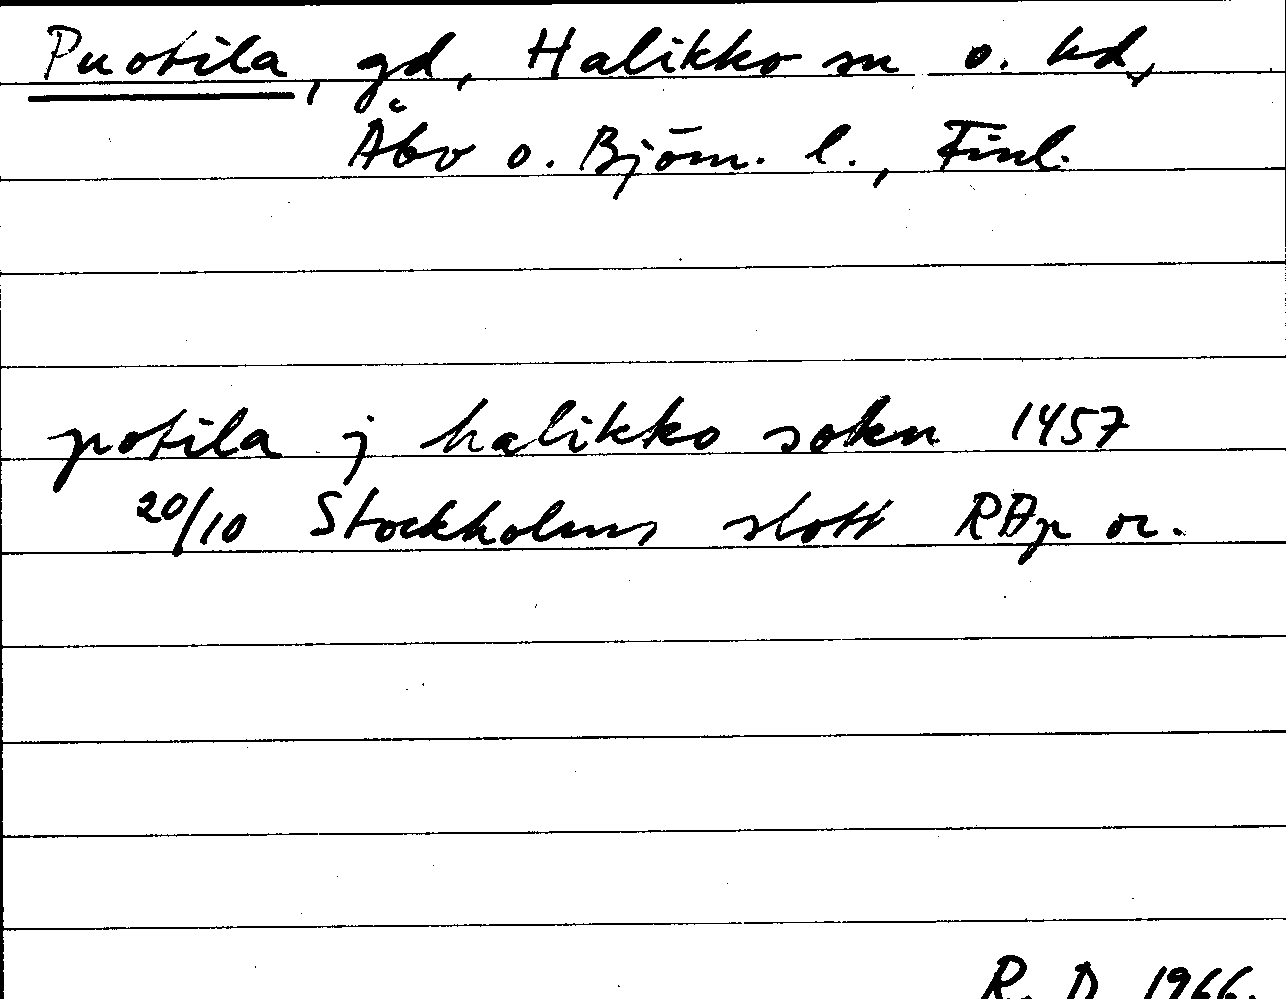 Puotila, gd, Halikko sn o. hd,
Åbo o. Björn. l., Finl.
potila j halikko sokn 1457
20/10 Stockholms slott RAp or.
R. D. 1966.